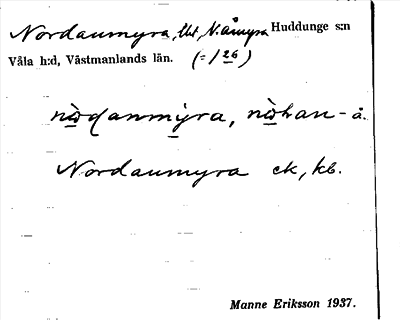 Nordaumyra, tht, N.åmyra Huddunge s:n
Våla h:d, Västmanlands län. (=/26)
nⱺdanmẏra, nⱺhan-å.
Nordaumyra ek, kb.
Manne Eriksson 1937.